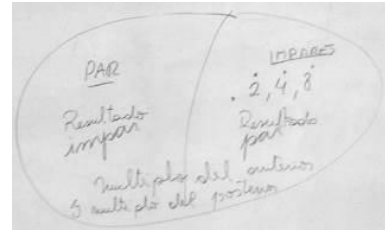 PAR
Resultado
impar
IMPARES
. 2, 4, 8
Resultado
par
multiplo del anterior
y multiplo del posterior